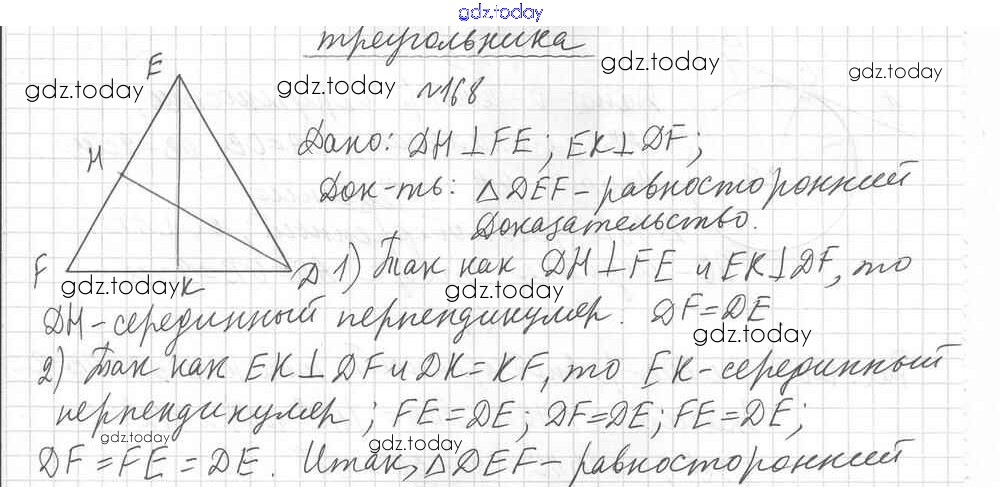 gdz.today
треугольника
gdz.today
gdz.today gdz.today №168 gdz.today
E
Дано: DH⊥FE; EK⊥DF;
H
Док-ть: △DEF – равносторонний
Доказательство.
F K D
1) Так как DH⊥FE и EK⊥DF, то
gdz.today gdz.today
DH – серединный перпендикуляр. DF=DE
gdz.today
2) Так как EK⊥DF и DK=KF, то EK – серединный
перпендикуляр; FE=DE; DF=DE; FE=DE;
gdz.today gdz.today
DF=FE=DE. Итак, △DEF – равносторонний